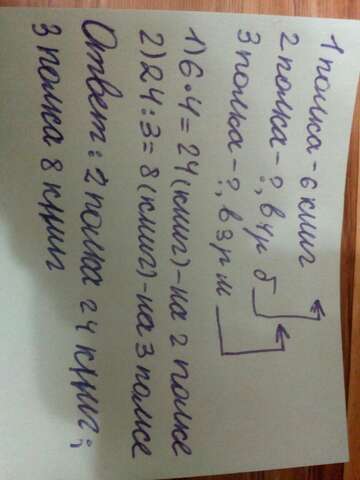 1 полка - 6 книг
2 полка - ?, в 4 р б
3 полка - ?, в 3 р м
1) 6 · 4 = 24 (книг) - на 2 полке
2) 24 : 3 = 8 (книг) - на 3 полке
Ответ: 2 полка 24 книг;
3 полка 8 книг